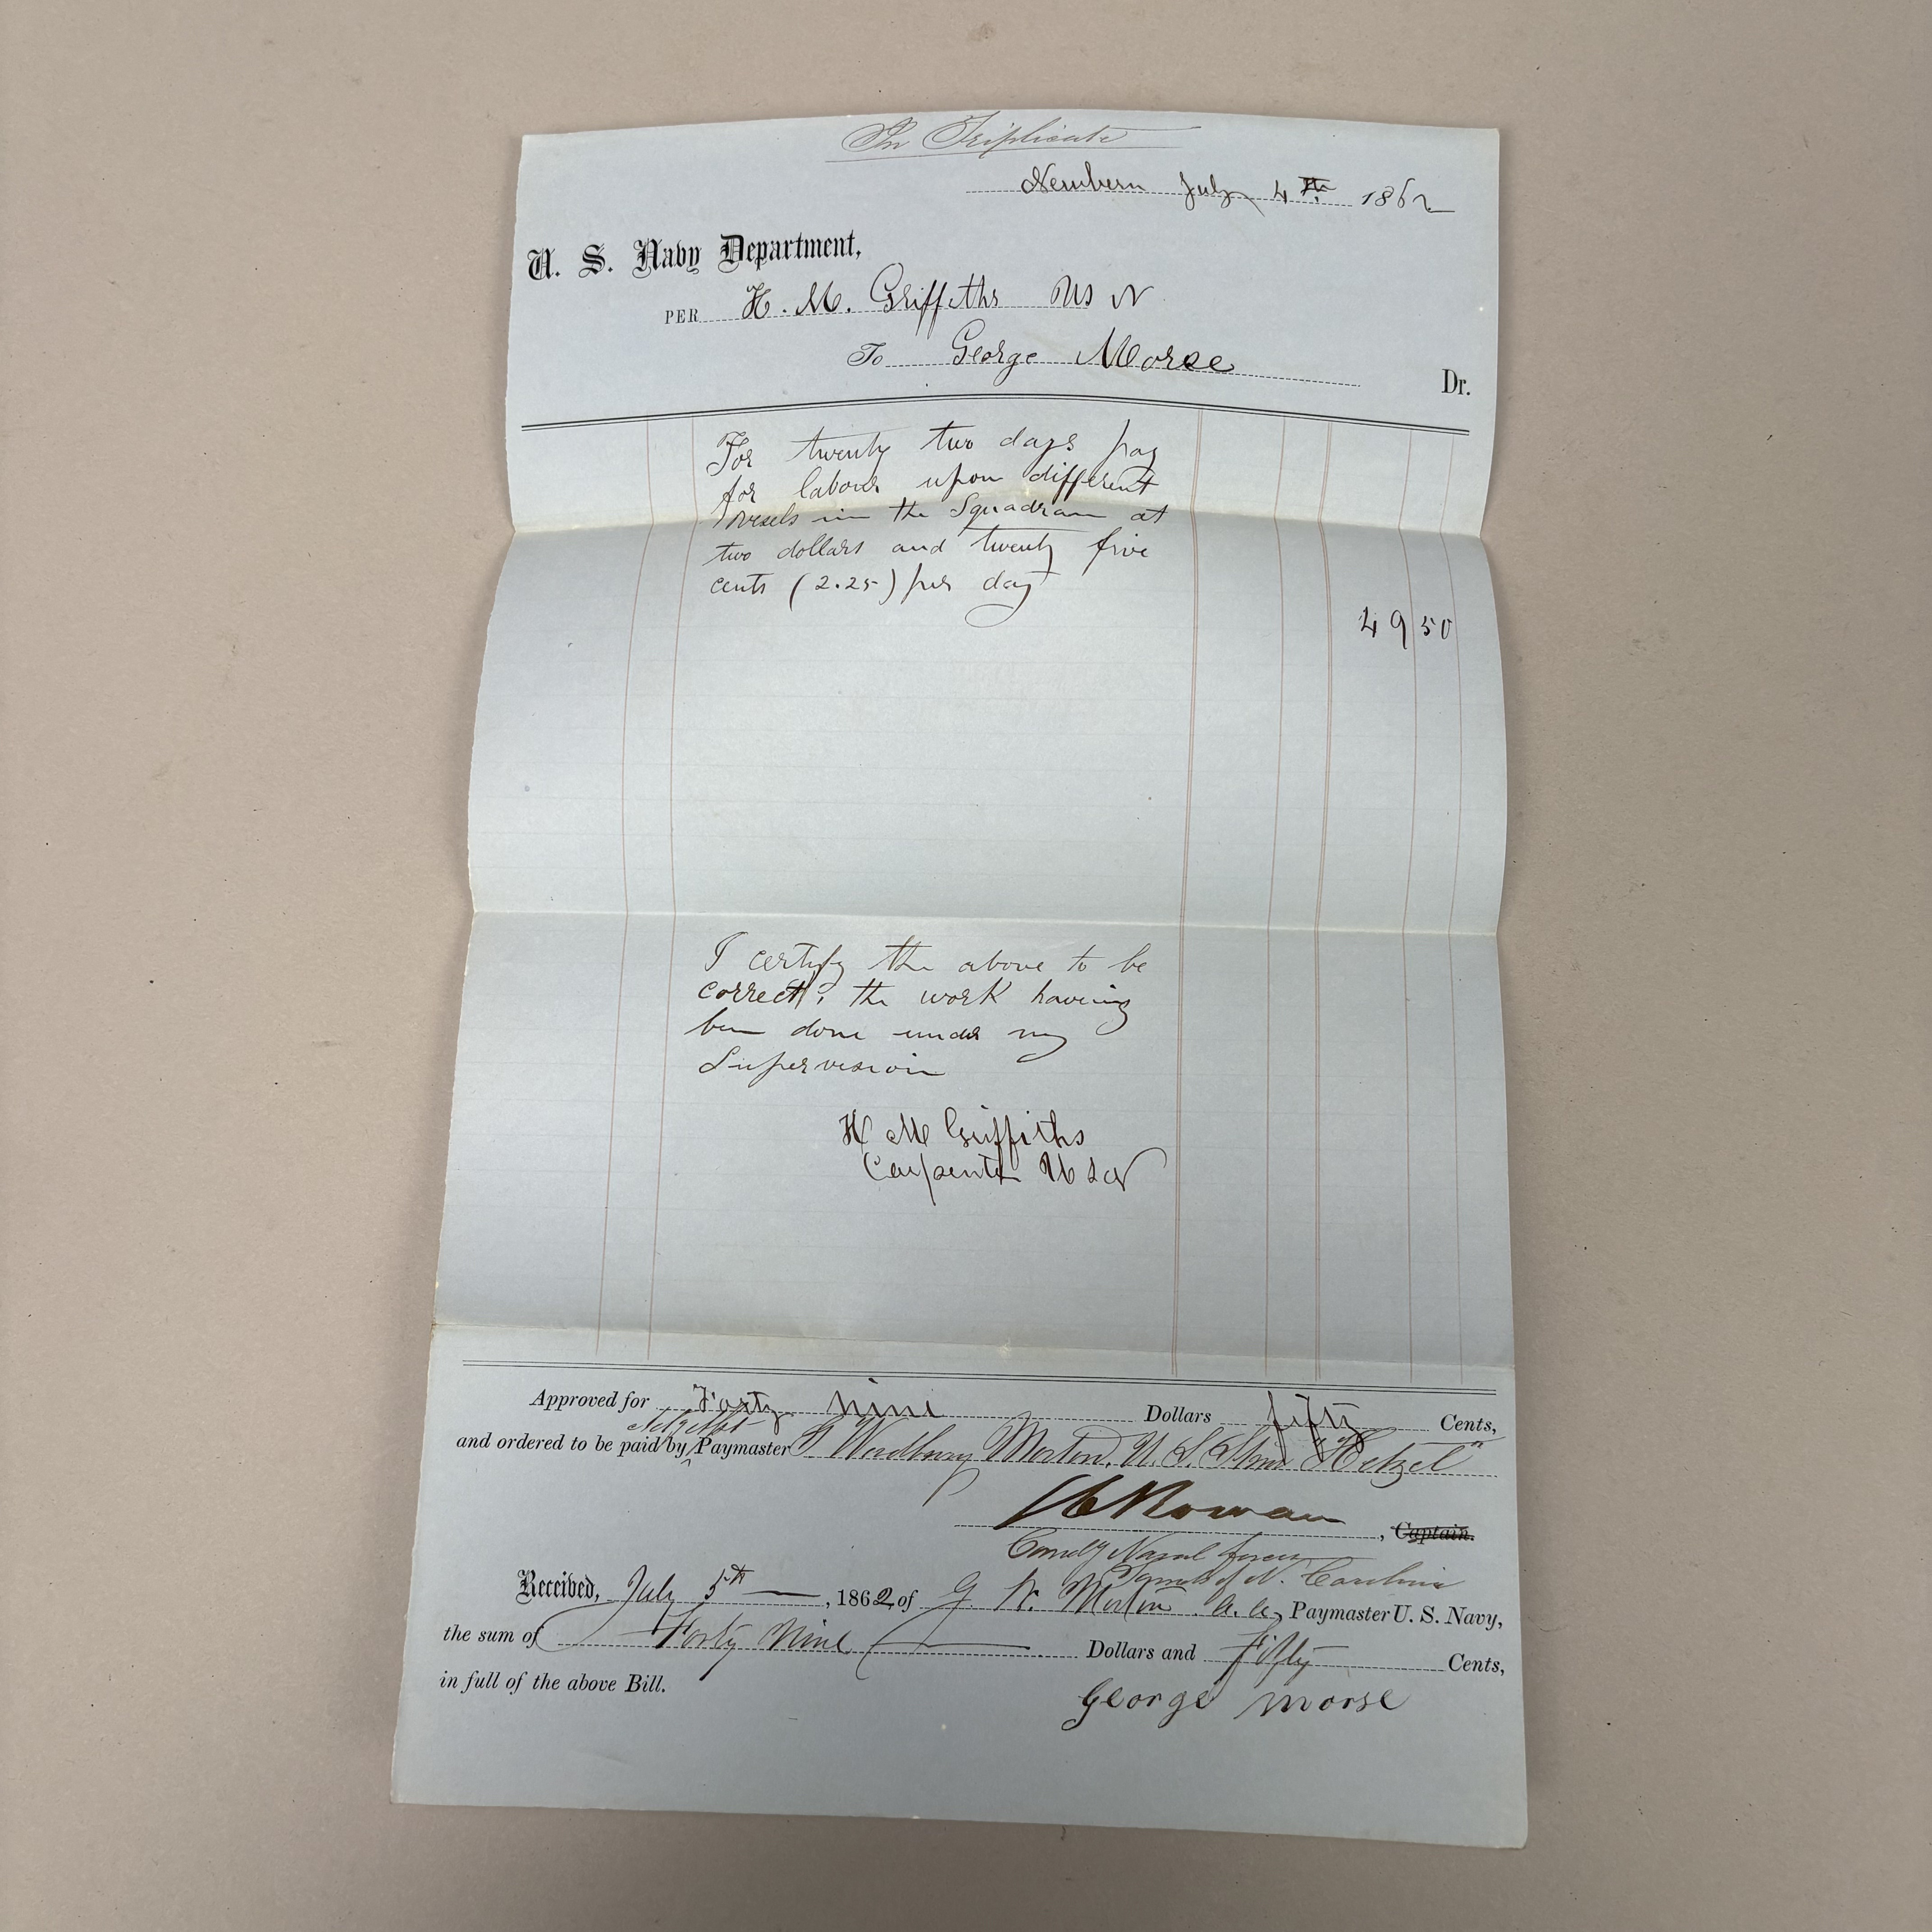 In Triplicate
Newbern July 4th 1862
U. S. Navy Department,
PER H. M. Griffiths U S N
To George Morse Dr.
For twenty two days pay
for labour upon different
Vessels in the Squadron at
two dollars and twenty five
cents (2.25) per day
49 50
I certify the above to be
correct, the work having
been done under my
Supervision
H M Griffiths
Carpenter U S N
Approved for Forty nine Dollars fifty Cents,
Act'g Asst
and ordered to be paid by Paymaster G. Woodbury Morton, U. S. Stmr "Hetzel"
S C Rowan, Captain.
Comd'g Naval forces
Sounds of N. Carolina
Received, July 5th, 1862, of G. W. Morton. A. A., Paymaster U. S. Navy,
the sum of Forty Nine Dollars and Fifty Cents,
in full of the above Bill.
George Morse